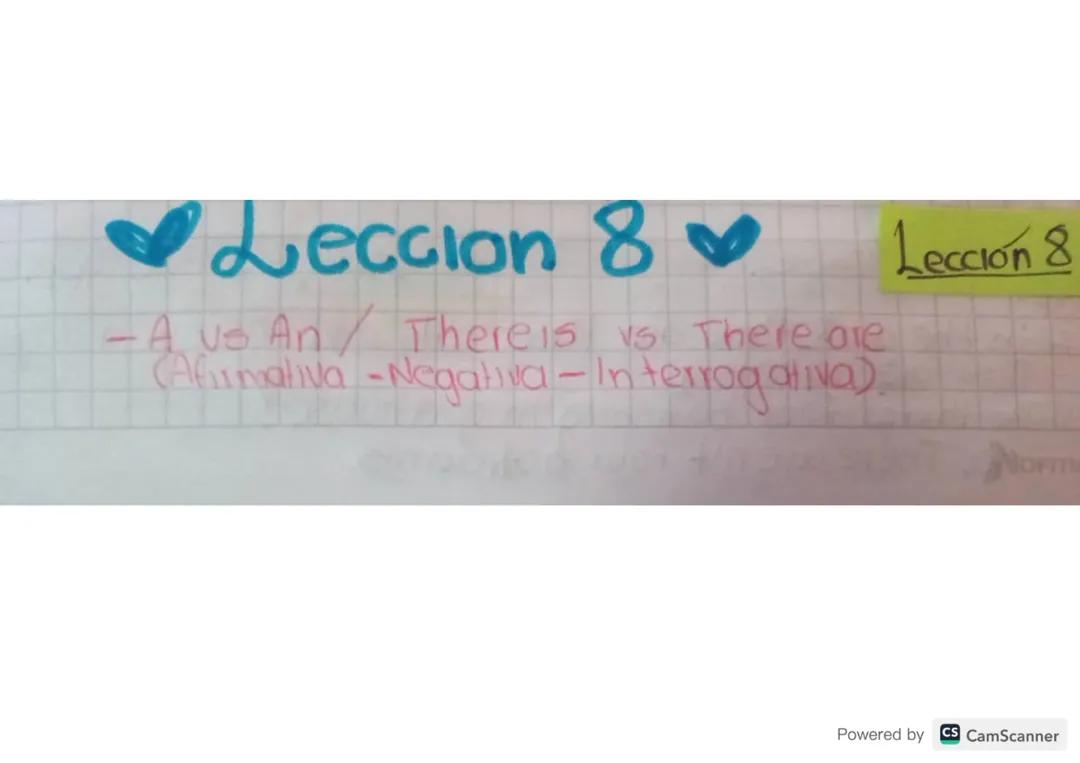 Leccion 8
Lección 8
- A vs An / There is vs There are
(Afirmativa - Negativa - Interrogativa)
Norma
Powered by CS CamScanner